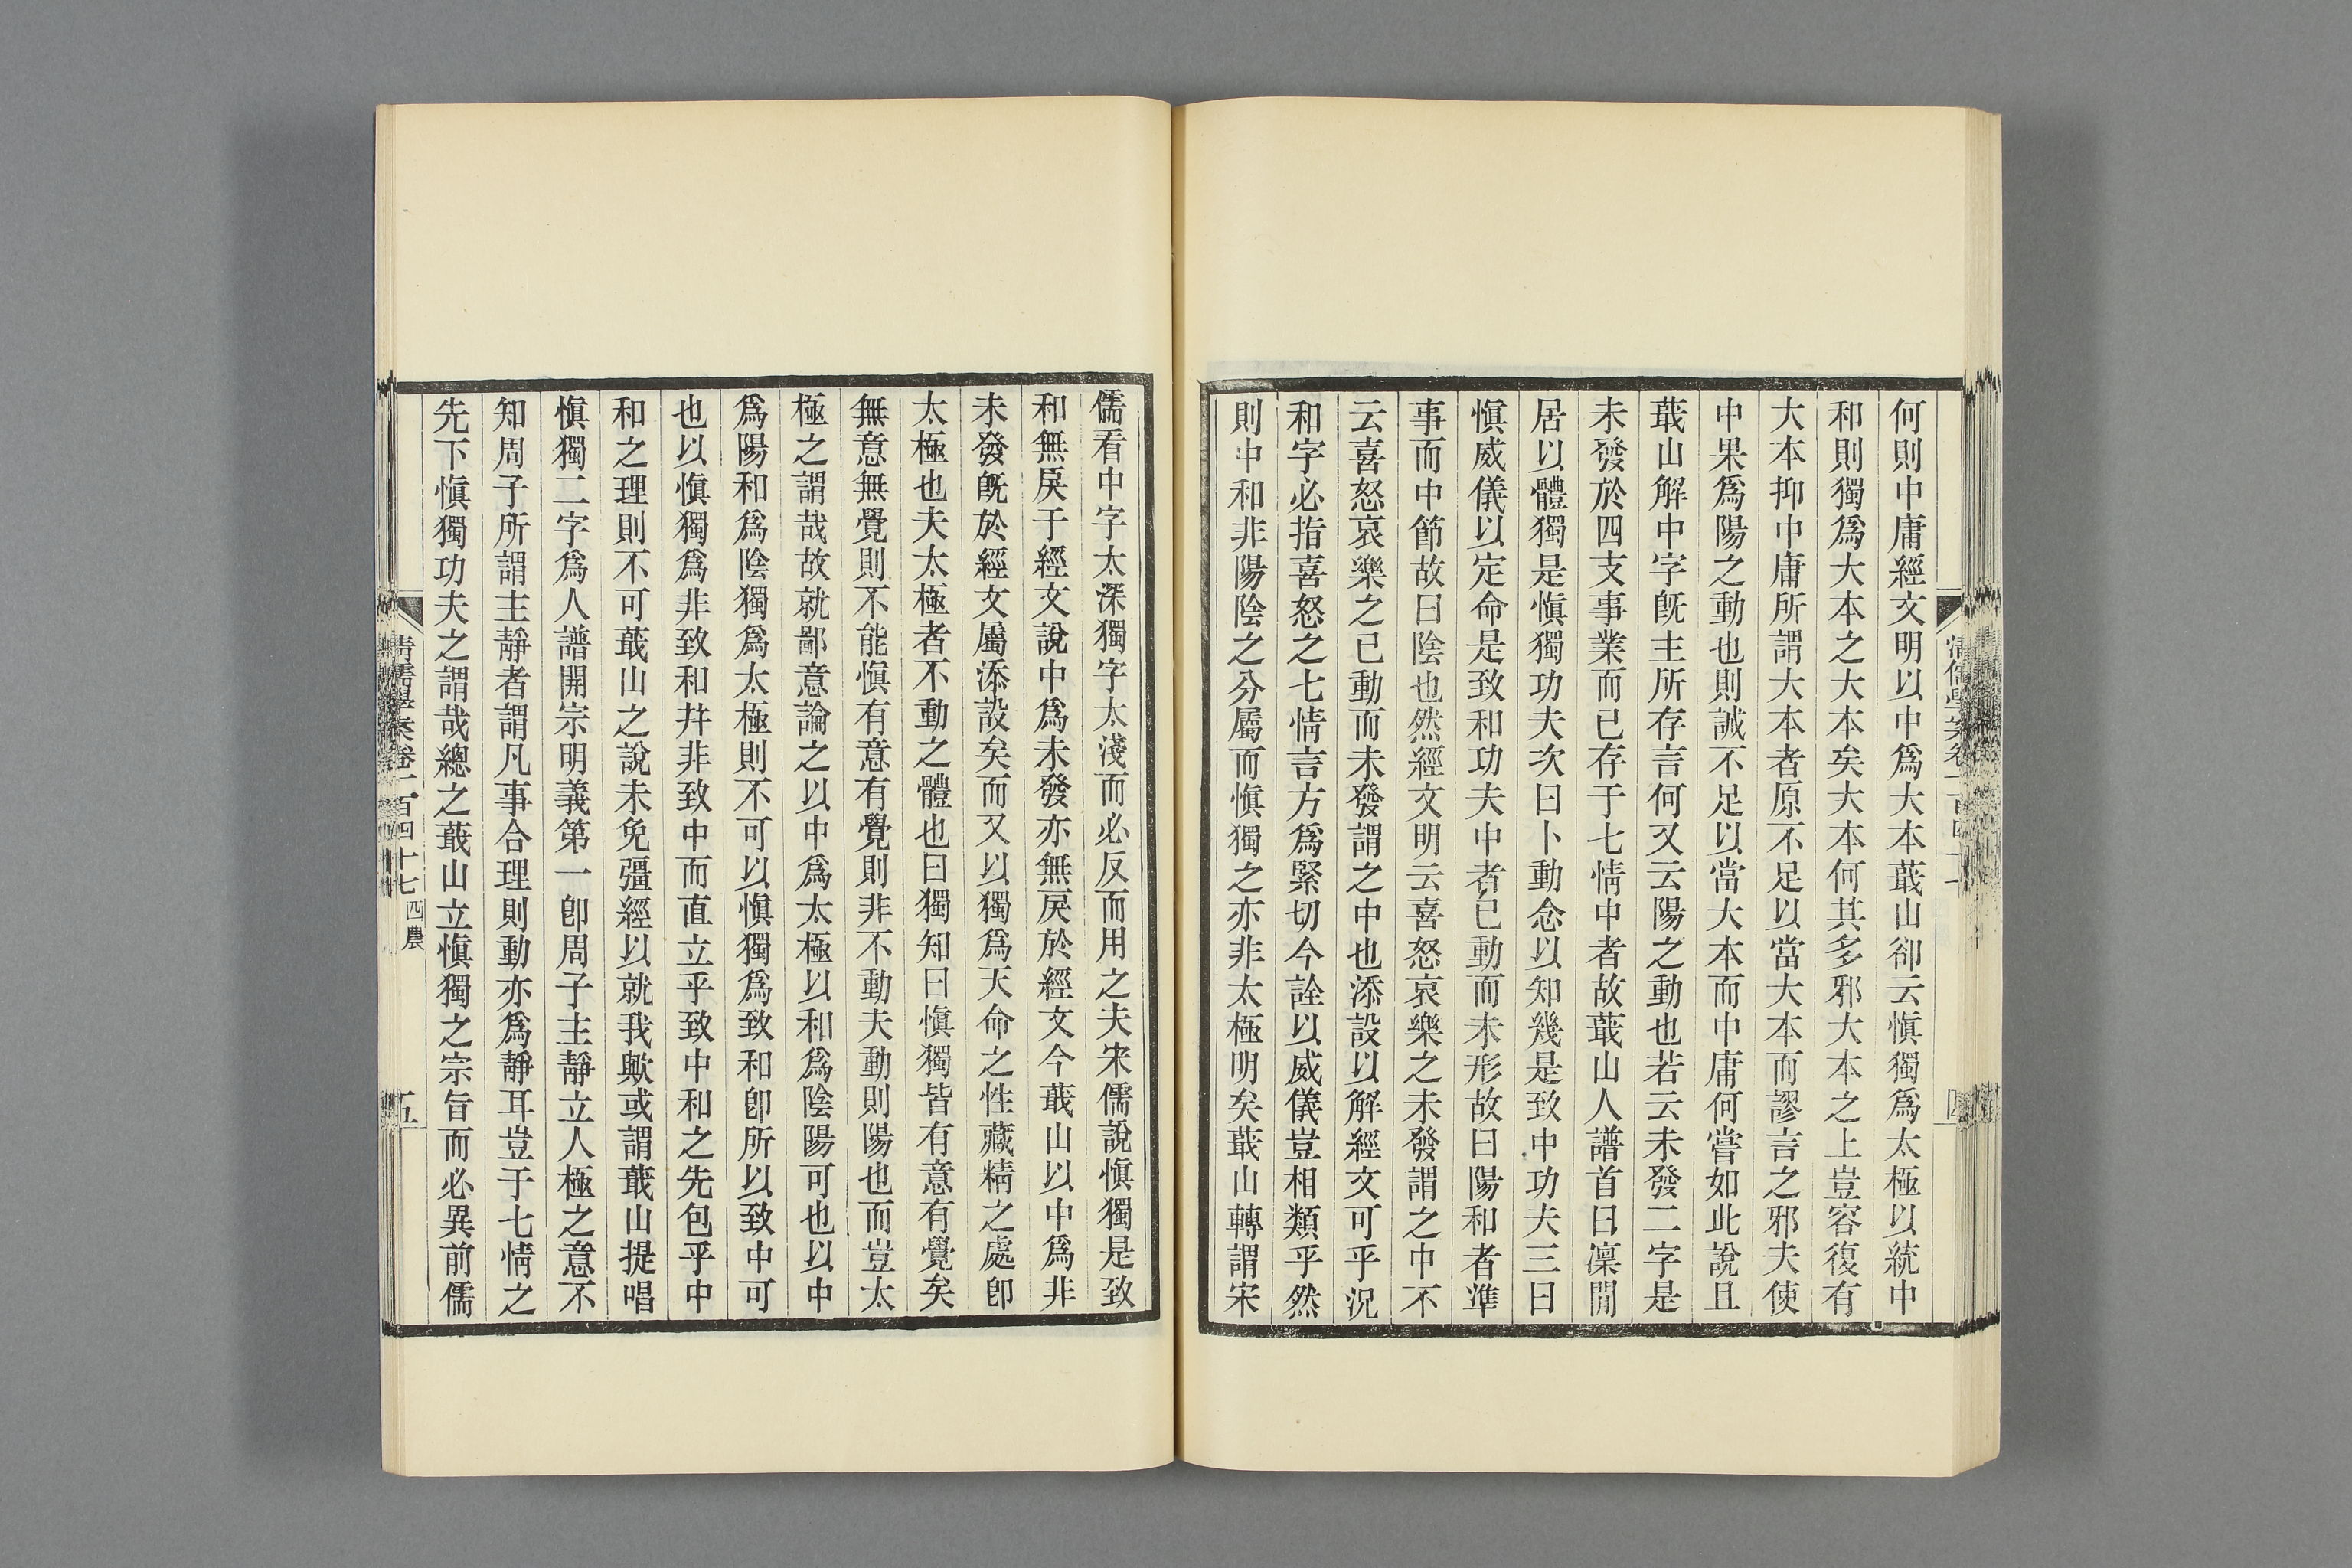 何則中庸經文明以中爲大本蕺山卻云愼獨爲太極以統中
和則獨爲大本之大本矣大本何其多邪大本之上豈容復有
大本抑中庸所謂大本者原不足以當大本而謬言之邪夫使
中果爲陽之動也則誠不足以當大本而中庸何嘗如此說且
蕺山解中字旣主所存言何又云陽之動也若云未發二字是
未發於四支事業而已存于七情中者故蕺山人譜首曰凜閒
居以體獨是愼獨功夫次曰卜動念以知幾是致中功夫三曰
愼威儀以定命是致和功夫中者已動而未形故曰陽和者準
事而中節故曰陰也然經文明云喜怒哀樂之未發謂之中不
云喜怒哀樂之已動而未發謂之中也添設以解經文可乎況
和字必指喜怒之七情言方爲緊切今詮以威儀豈相類乎然
則中和非陽陰之分屬而愼獨之亦非太極明矣蕺山轉謂宋
儒看中字太深獨字太淺而必反而用之夫宋儒說愼獨是致
和無戾于經文說中爲未發亦無戾於經文今蕺山以中爲非
未發旣於經文屬添設矣而又以獨爲天命之性藏精之處卽
太極也夫太極者不動之體也曰獨知曰愼獨皆有意有覺矣
無意無覺則不能愼有意有覺則非不動夫動則陽也而豈太
極之謂哉故就鄙意論之以中爲太極以和爲陰陽可也以中
爲陽和爲陰獨爲太極則不可以愼獨爲致和卽所以致中可
也以愼獨爲非致和幷非致中而直立乎致中和之先包乎中
和之理則不可蕺山之說未免彊經以就我歟或謂蕺山提唱
愼獨二字爲人譜開宗明義第一卽周子主靜立人極之意不
知周子所謂主靜者謂凡事合理則動亦爲靜耳豈于七情之
先下愼獨功夫之謂哉總之蕺山立愼獨之宗旨而必異前儒
清儒學案卷一百四十七 四農
五